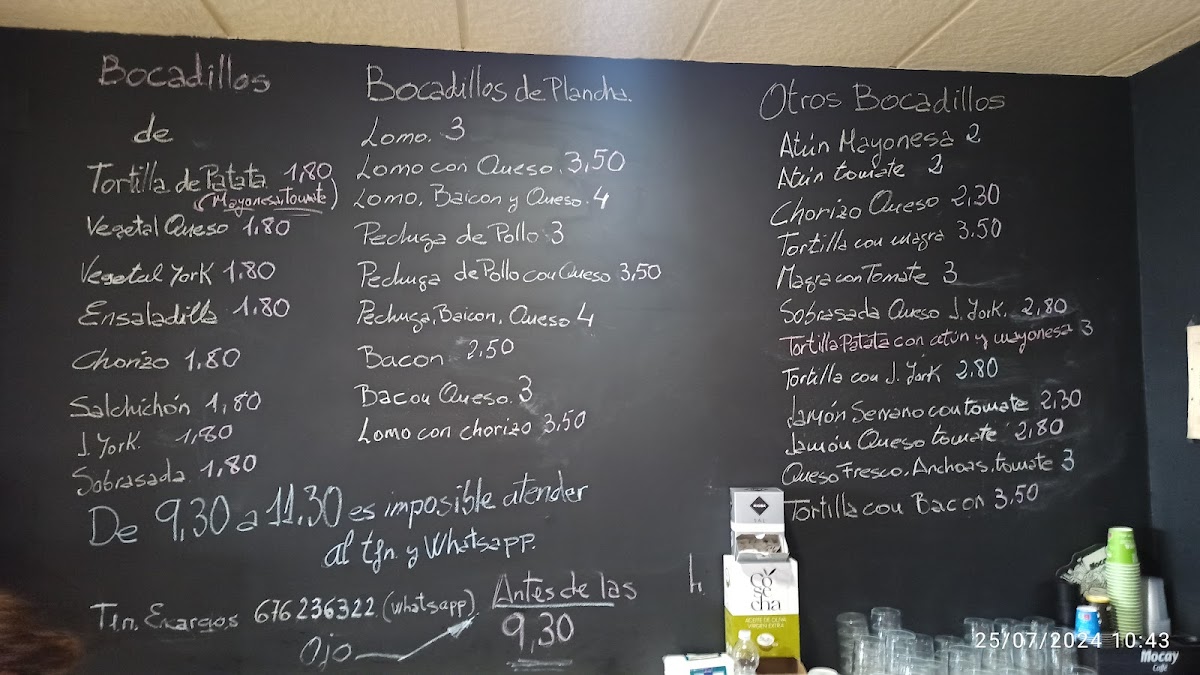 Bocadillos
de
Tortilla de Patata 1,80
(Mayonesa, Tomate)
Vegetal Queso 1,80
Vegetal York 1,80
Ensaladilla 1,80
Chorizo 1,80
Salchichón 1,80
J. York. 1,80
Sobrasada 1,80
Bocadillos de Plancha.
Lomo. 3
Lomo con Queso. 3,50
Lomo, Baicon y Queso. 4
Pechuga de Pollo 3
Pechuga de Pollo con Queso 3,50
Pechuga, Baicon, Queso 4
Bacon 2,50
Bacon Queso. 3
Lomo con chorizo 3,50
Otros Bocadillos
Atún Mayonesa 2
Atún tomate 2
Chorizo Queso 2,30
Tortilla con magra 3.50
Magra con Tomate 3
Sobrasada Queso J. York. 2,80
Tortilla Patata con atún y mayonesa 3
Tortilla con J. York 2.80
Jamón Serrano con tomate 2,30
Jamón Queso tomate 2,80
Queso Fresco, Anchoas, tomate 3
Tortilla con Bacon 3,50
De 9,30 a 11,30 es imposible atender
al tfn. y Whatsapp.
Tfn. Enargos 676236322 (whatsapp)
Ojo
Antes de las
9,30
h.
Cosecha
ACEITE DE OLIVA
VIRGEN EXTRA
Mocay
Café
25/07/2024 10:43